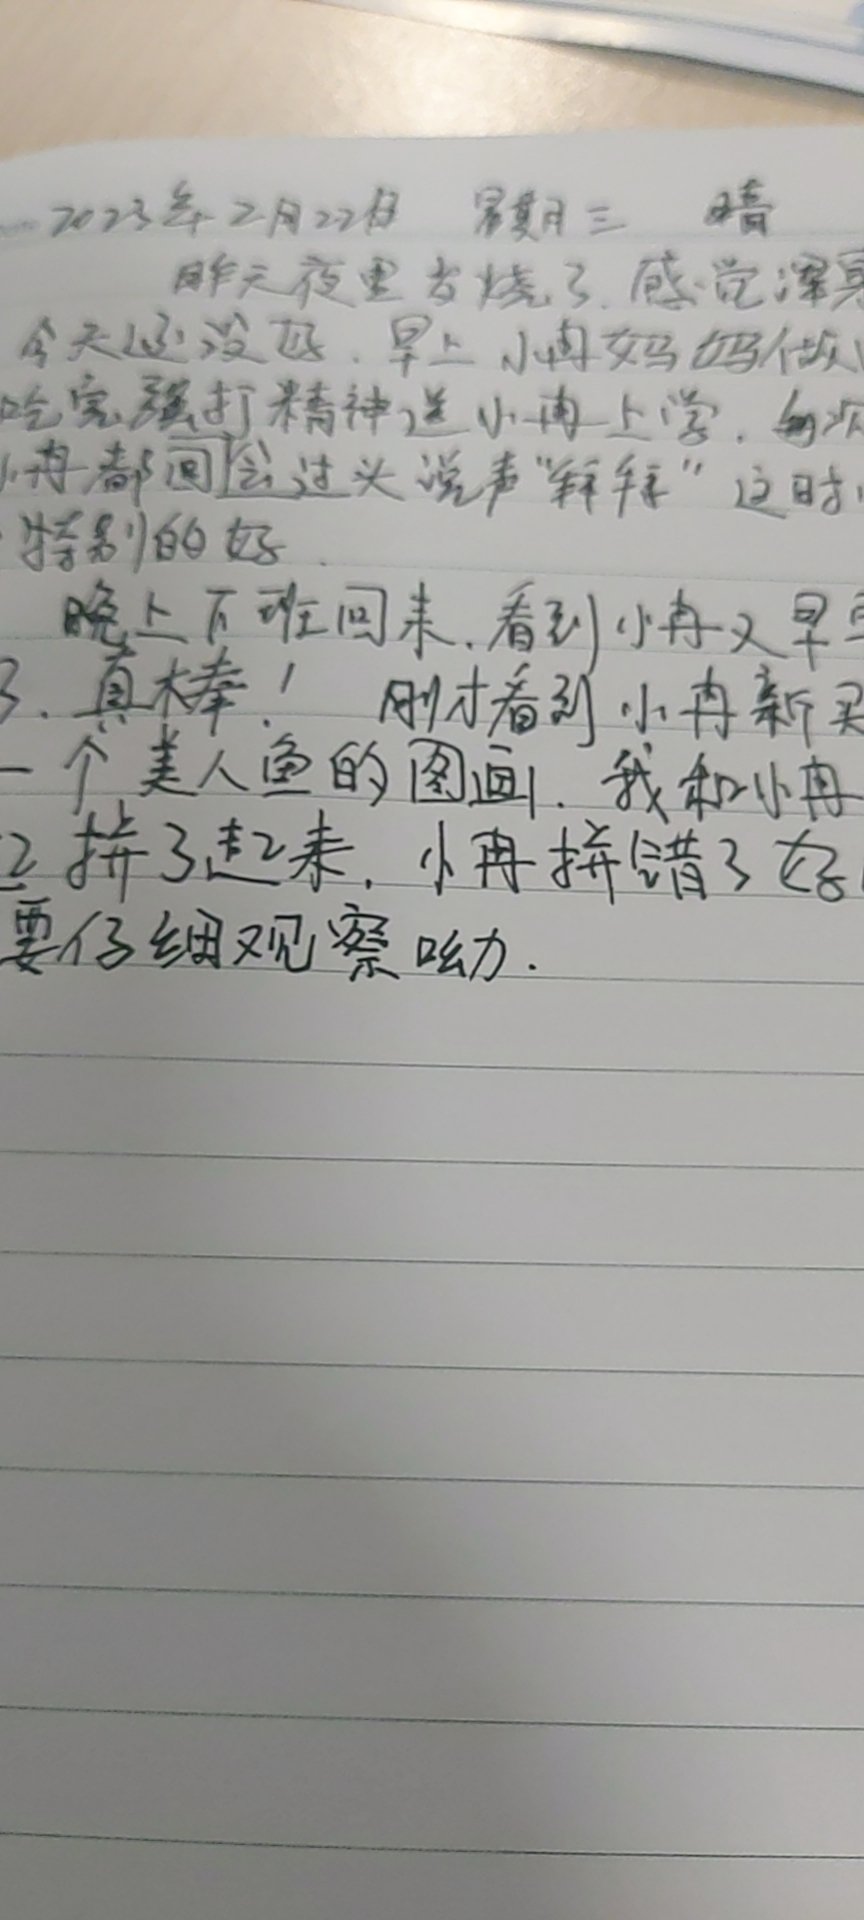 2023年2月22日 星期三 晴
昨天夜里发烧了.感觉浑
今天还没好.早上小冉妈妈做
吃完强打精神送小冉上学.每次
小冉都回会过头说声“拜拜”这时
特别的好.
晚上下班回来.看到小冉又早
了.真棒! 刚才看到小冉新买
一个美人鱼的图画.我和小冉
拼了起来.小冉拼错了好
要仔细观察呦.